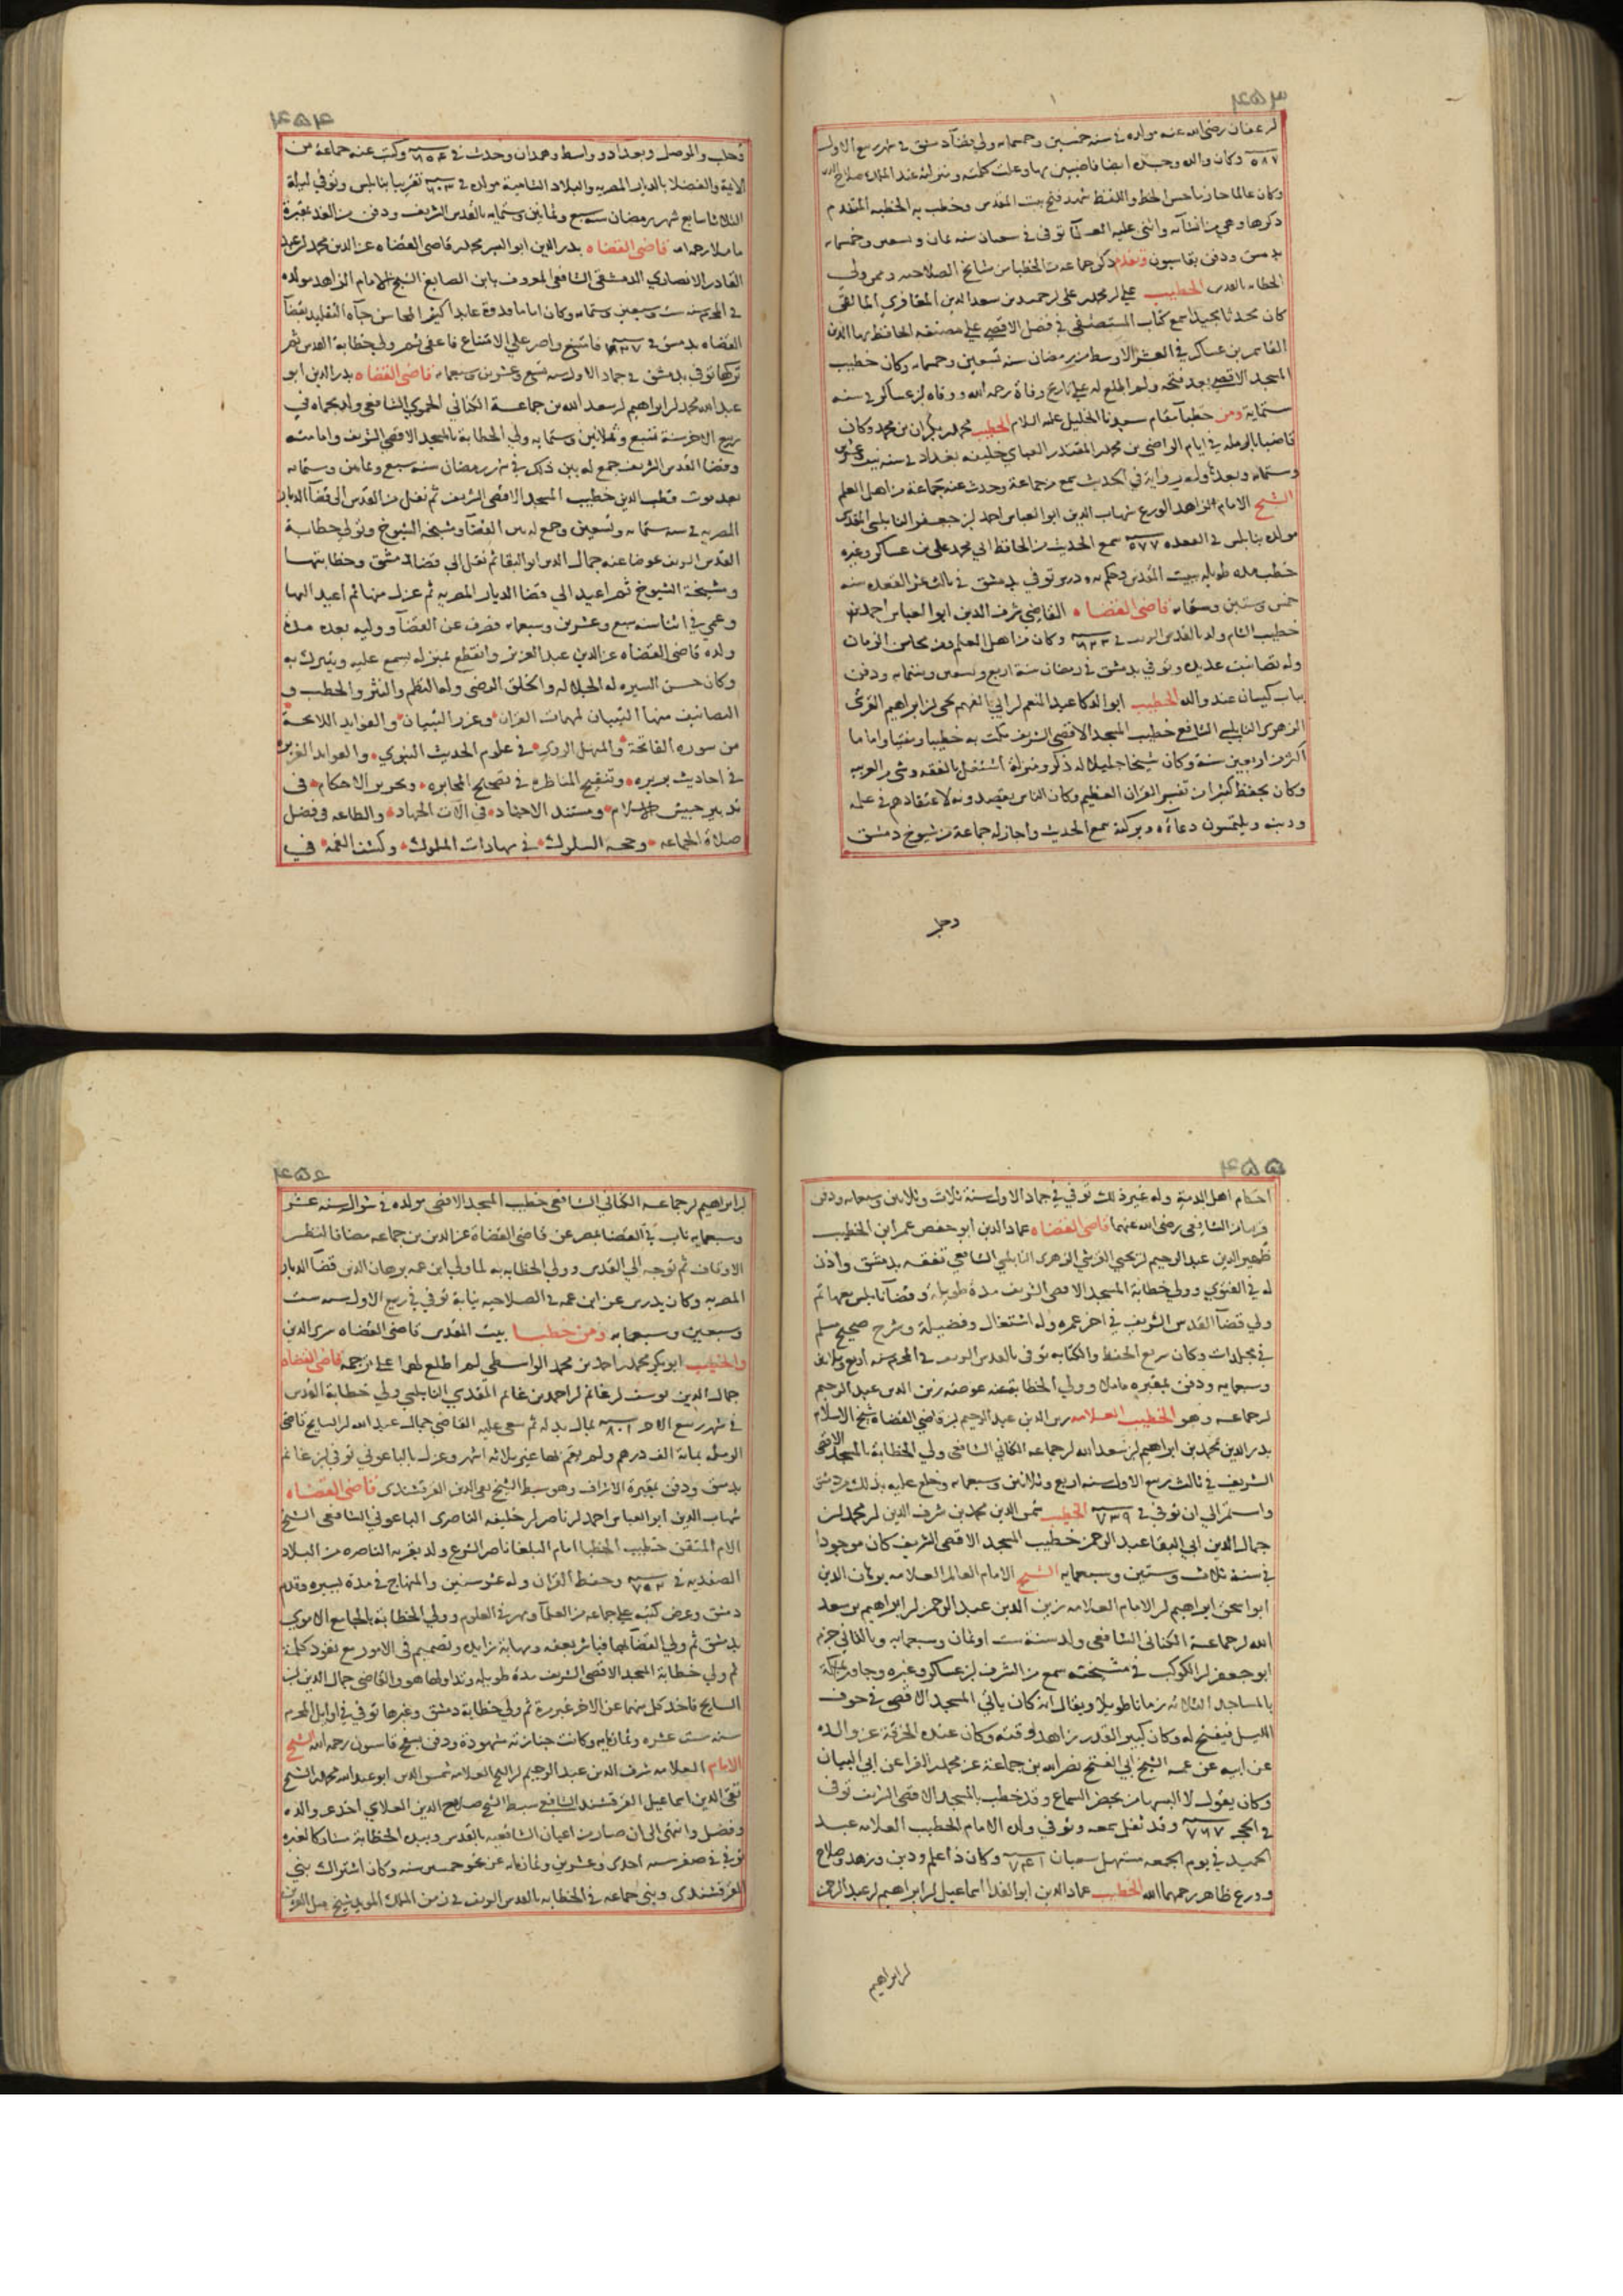 ٤٥٣
بن عفان رضي الله عنه مولده في سنه خمسين وخمسمايه ولي قضآ دمشق في شهر ربيع الاول
٥٨٧ وكان والده وجده ايضا قاضيين بها وعلت كلمته ومنزلته عند الملك صلاح الدين
وكان عالما حازما حسن الخط واللفظ شهد فتح بيت المقدس وخطب به الخطبه المتقدم
ذكرها وهي من انشآئه واثنى عليه العمآ توفي في سعبان سنه ثمان و وخمسمايه
بدمشق ودفن بقاسيون وتقدم ذكر جماعة من الخطبا من مشايخ الصلاحيه وممن ولي
الخطابه بالقدس الخطيب علي بن محمد بن علي بن حميد بن سعد الدين المعافري المالقي
كان محدثا مجيدا سمع كتاب المستصفى في فضل الاقصى على مصنفه الحافظ بهاالدين
القاسم بن عساكر في العشر الاوسط من رمضان سنه تسعين وخمسمايه وكان خطيب
المسجد الاقصى بعد فتحه ولم اطلع له على تاريخ وفاة رحمه الله ووفاه بن عساكر في سنه
ستماية ومن خطبآ مقام سيدنا الخليل عليه السلام الخطيب محمد بن بكران بن محمد وكان
قاضيا بالرمله في ايام الراضي بن محمد المقتدر العباسي خليفه بغداد في سنه نيف وعشرين
وستمايه وبعدها وله رواية في الحديث سمع من جماعة وحدث عنه جماعة من اهل العلم
الشيخ الامام الزاهد الورع شهاب الدين ابوا العباس احمد بن جعفر النابلسي المقدسي
مولده بنابلس في القعده ٥٧٧ سمع الحديث من الحافظ ابي محمد علي بن عساكر وغيره
خطب مده طويله ببيت المقدس وحكم به ودرس توفي بدمشق في ثالث عشر القعده سنه
خمس وستين وستمايه قاضي القضاه القاضي شرف الدين ابوا العباس احمد بن
خطيب الشام ولد بالقدس الشريف في ٦٢٣ وكان من اهل العلم ومن محاسن الزمان
وله تصانيف عديده وتوفي بدمشق في رمضان سنة اربع وتسعين وستمايه ودفن
بباب كيسان عند والده الخطيب ابوا لذكا عبد المنعم بن ابي الفهم يحيى بن ابراهيم القرشي
الزهري النابلسي الشافعي خطيب المسجد الاقصى الشريف مكث به خطيبا ومفتيا واماما
اكثر من اربعين سنة وكان شيخا جليلا له ذكر ومنزلة اشتغل بالفقه وشي من العربيه
وكان يحفظ كثيرا من تفسير القران العظيم وكان الناس يقصدونه لاعتقادهم في علمه
ودينه ويلتمسون دعآءه وبركته سمع الحديث واجاز له جماعة من شيوخ دمشق
وحلب
٤٥٤
وحلب والموصل وبغداد وواسط وهمدان وحدث في ٦٥٤ وكتب عنه جماعة من
الايمة والفضلا بالديار المصريه والبلاد الشامية مولده في ٦٠٣ تقريبا بنابلس وتوفي ليلة
الثلاثا سابع شهر رمضان سنه سبع وثمانين وستمايه بالقدس الشريف ودفن من الغد بمقبرة
ماملا رحمه الله قاضي القضاه بدر الدين ابو اليسر محمد بن قاضي القضاه عز الدين محمد بن عبد
القادر الانصاري الدمشقي الشافعي المعروف بابن الصايغ الشيخ الامام الزاهد مولده
في المحرم سنه ست وسبعين وستمايه وكان اماما قدوة عابدا كثير المحاسن جآه التقليد بقضآ
القضاه بدمشق في ٧٢٧ فامتنع واصر علي الامتناع فاعفي ثم ولي خطابة القدس ثم
تركها توفي بدمشق في جماد الاول سنه تسع وعشرين وسبعمايه قاضي القضاه بدر الدين ابو
عبد الله محمد بن ابراهيم بن سعد الله بن جماعة الكناني الحموي الشافعي ولد بحماه في
ربيع الاخر سنة تسع وثلاثين وستمايه ولي الخطابة بالمسجد الاقصى الشريف وامامته
وقضا القدس الشريف جمع له بين ذلك في شهر رمضان سنه سبع وثمانين وستمايه
بعد موت قطب الدين خطيب المسجد الاقصى الشريف ثم نقل من القدس الى قضآ الديار
المصريه في سنه ستمايه وتسعين وجمع له بين القضآ ومشيخه الشيوخ وتولي خطابة
القدس الشريف عوضا عنه جمال الدين ابو البقا ثم نقل الي قضا دمشق وخطابتها
ومشيخة الشيوخ ثم اعيد الي قضا الديار المصريه ثم عزل منها ثم أعيد اليها
وعمي في اثنا سنه سبع وعشرين وسبعمايه فصرف عن القضآ ووليه بعده مدة
ولده قاضي القضاه عز الدين عبد العزيز وانقطع بمنزله يسمع عليه ويتبرك به
وكان حسن السيره له الجلاله والخلق الرضي وله النظم والنثر والخطب و
التصانيف منها التبيان لمبهمات القران وغرر التبيان والفوايد اللايحة
من سوره الفاتحة والمنهل الروي في علوم الحديث النبوي والفوايد الغزيره
في احاديث بريره وتنقيح المناظره في تصحيح المخابره وتحرير الاحكام في
تدبير جيش الاسلام ومستند الاجناد في الات الجهاد والطاعه وفضل
صلاة الجماعه وحجه السلوك في مهادات الملوك وكشف الغمه في
٤٥٥
احكام اهل الذمة وله غير ذلك توفي في جماد الاول سنة ثلاث وثلاثين وسبعمايه ودفن
الشافعي رضي الله عنهما قاضي القضاه عماد الدين ابو حفص عمر ابن الخطيب
ظهير الدين عبد الرحيم بن يحيى القرشي الزهري النابلسي الشافعي تفقه بدمشق وأذن
له في الفتوي وولي خطابة المسجد الاقصى الشريف مدة طويله وقضآ نابلس معها ثم
ولي قضآ القدس الشريف في اخر عمره وله اشتغال وفضيلة وشرح صحيح مسلم
في مجلدات وكان سريع الحفظ والكتابه توفي بالقدس الشريف في المحرم سنه أربع وثلاثين
وسبعمايه ودفن بمقبره ماملا وولي الخطابة عنه عوضه زين الدين عبد الرحيم
بن جماعه وهو الخطيب العلامه زين الدين عبد الرحيم بن قاضي القضاة شيخ الاسلام
بدر الدين محمد بن ابراهيم بن سعد الله بن جماعه الكناني الشافعي ولي الخطابة بالمسجد الاقصى
الشريف في ثالث ربيع الاول سنه اربع وثلاثين وسبعمايه وخلع عليه بذلك من دمشق
واستمر الي ان توفي في ٧٣٩ الخطيب شمس الدين محمد بن شرف الدين بن محمد بن
جمال الدين ابي البقا عبد الرحمن خطيب المسجد الاقصى الشريف كان موجودا
في سنة ثلاث وستين وسبعمايه الشيخ الامام العالم العلامه برهان الدين
ابوا سحق ابراهيم بن الامام العلامه زين الدين عبد الرحمن بن ابراهيم بن سعد
الله بن جماعة الكناني الشافعي ولد سنة ست اوثمان وسبعمايه وبالثاني جزم
ابو جعفر بن الكوكب في مشيخته سمع من الشرف بن عساكر وغيره وجاور بمكة
بالمساجد الثلاثه زمانا طويلا ويقال انه كان ياتي المسجد الاقصى في جوف
الليل فيفتح له وكان كبير القدر زاهد وقته وكان عنده الخرقة عن والده
عن ابيه عن عمه الشيخ ابي الفتح نصر الله بن جماعة عن محمد بن الفرا عن ابي البيان
وكان يقول لا البسها من يحضر السماع وقد خطب بالمسجد الاقصى الشريف توفي
في الحجه ٧٦٧ وقد ثقل سمعه وتوفي ولده الامام الخطيب العلامه عبد
الحميد في يوم الجمعه مستهل سعبان ٧٤١ وكان ذا علم ودين وزهد وصلاح
وورع ظاهر رحمهما الله الخطيب عماد الدين ابوا الفدا اسماعيل بن ابراهيم بن عبد الرحمن
بن ابراهيم
٤٥٦
بن ابراهيم بن جماعه الكناني الشافعي خطيب المسجد الاقصى مولده في شوال سنه عشر
وسبعمايه ناب في القضا بمصر عن قاضي القضاة عز الدين بن جماعه مضافا لنظر
الاوقاف ثم توجه الي القدس وولي الخطابه به لما ولي ابن عمه برهان الدين قضآ الديار
المصريه وكان يدرس عن ابن عمه في الصلاحيه نيابة توفي في ربيع الاول سنه ست
وسبعين وسبعمايه ومن خطبا بيت المقدس قاضي القضاه سري الدين
والخطيب ابو بكر محمد بن احمد بن محمد الواسطي لم اطلع لهما علي ترجمة قاضي القضاه
جمال الدين يوسف بن غانم بن احمد بن غانم المقدسي النابلسي ولي خطابة القدس
في شهر ربيع الاخر ٨٠١ بمال بذله ثم سعي عليه القاضي جمال عبد الله بن السايح قاضي
الرمله بمائة الف درهم ولم يقم بها غير ثلاثه اشهر وعزل بالباعوني توفي بن غانم
بدمشق ودفن بمقبرة الاشراف وهو سبط الشيخ تقي الدين القرقشندي قاضي القضاه
شهاب الدين ابوا العباس احمد بن ناصر بن خليفه الناصري الباعوني الشافعي الشيخ
الامام المتقن خطيب الخطبا امام البلغا ناصر الشرع ولد بقريه الناصره من البلاد
الصفديه في ٧٥٢ وحفظ القران وله عشر سنين والمنهاج في مدة يسيره وقدم
دمشق وعرض كتبه علي جماعه من العلمآ ومهر في العلوم وولي الخطابة بالجامع الاموي
بدمشق ثم ولي القضآ بها فباشر بعفه ومهابة زايده وتصميم في الامور مع نفوذ كلمة
ثم ولي خطابة المسجد الاقصى الشريف مدة طويله وتداولها هو والقاضي جمال الدين بن
السايح فاخذ كل منهما عن الاخر غير مرة ثم ولي خطابة دمشق وغيرها توفي في اوايل المحرم
سنه ست عشره وثمانمايه وكانت جنازته مشهودة ودفن بسفح قاسون رحمه الله الشيخ
الامام العلامه شرف الدين عبد الرحيم بن الشيخ العلامه شمس الدين ابو عبد الله محمد بن الشيخ
تقي الدين اسماعيل القرقشندي الشافعي سبط الشيخ صلاح الدين العلاي اخذ عن والده
وفضل وانتهى الى ان صار من اعيان الشافعيه بالقدس وبيده الخطابة مشاركا لغيره
توفي في صفر سنه احدى وعشرين وثمانمايه عن نحو خمسين سنه وكان اشتراك بني
القرقشندي وبني جماعه في الخطابه بالقدس الشريف في زمن الملك المويد شيخ